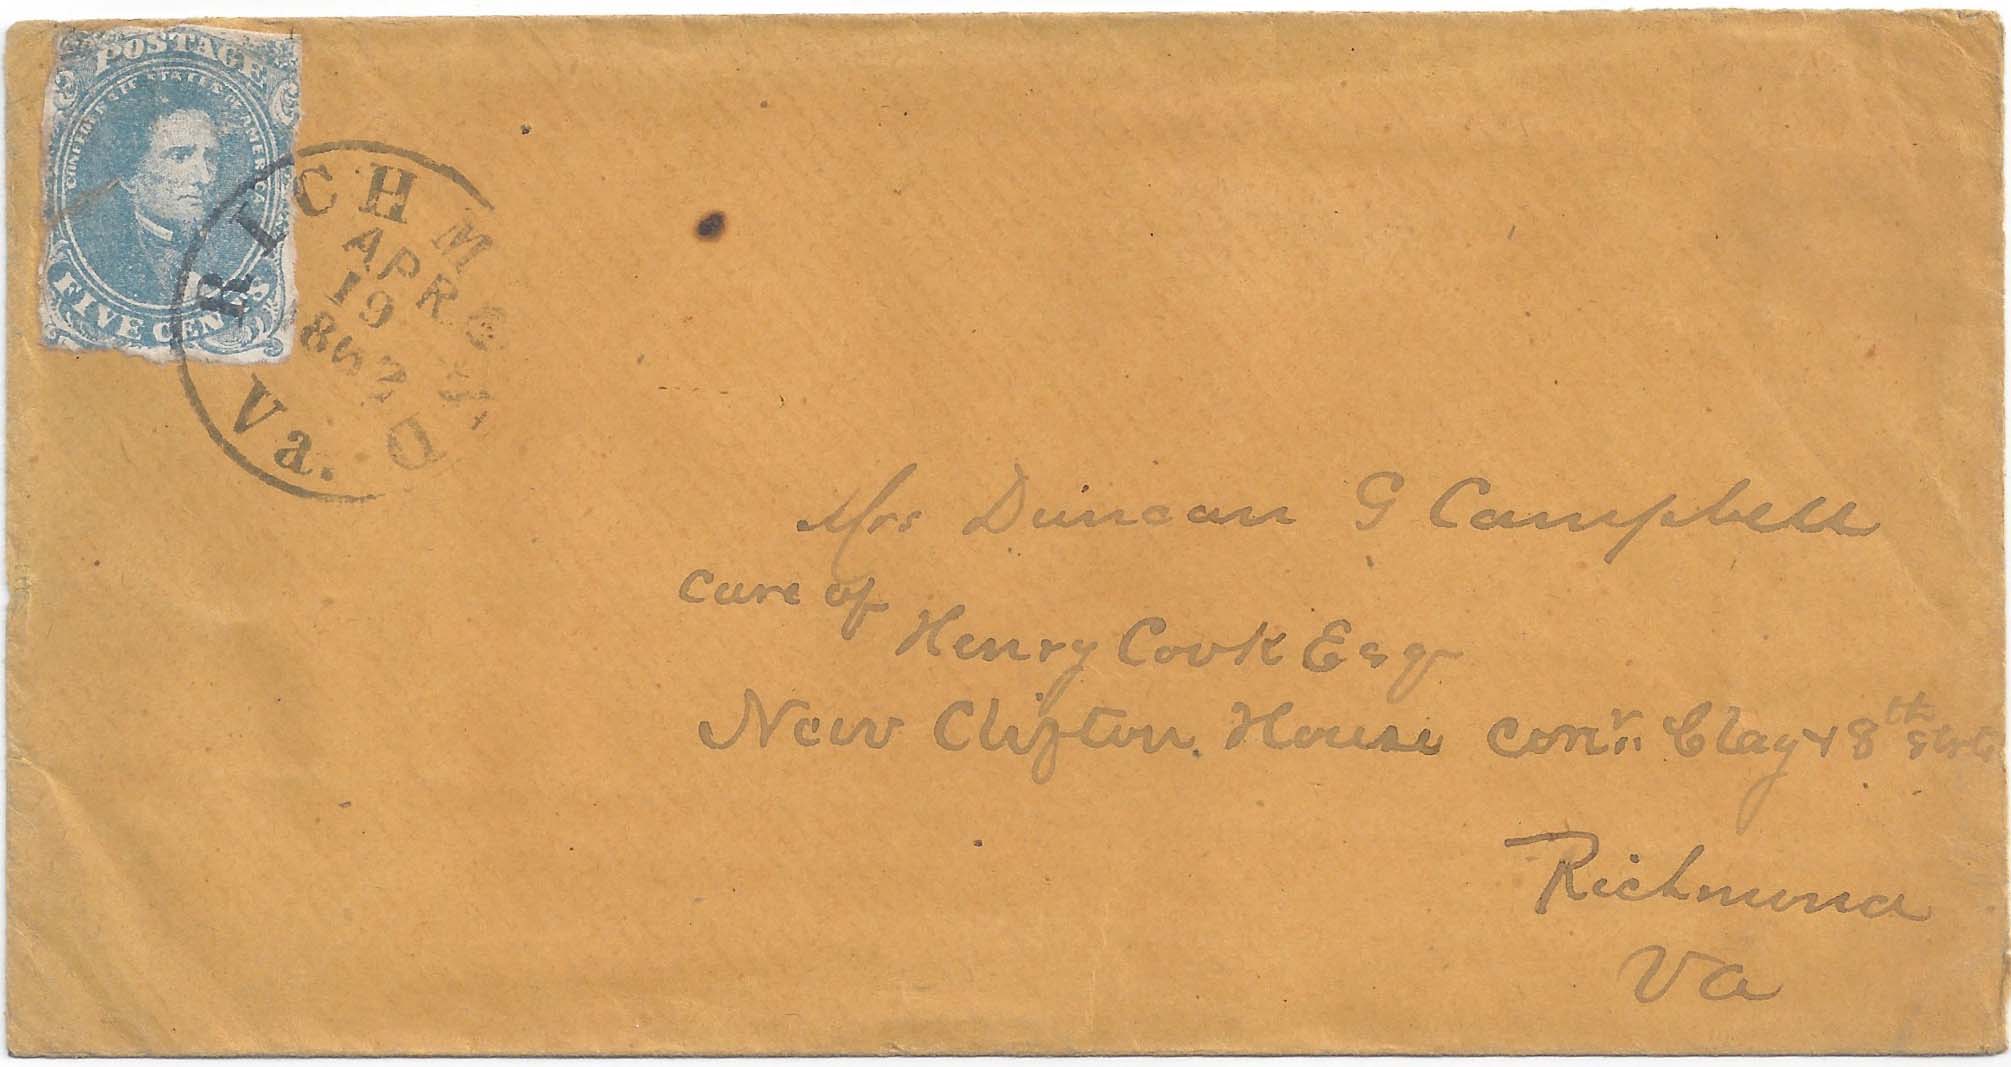 POSTAGE
CONFEDERATE STATES OF AMERICA
FIVE CENTS
RICHMOND
APR
19
1862
Va.
Mrs Duncan G Campbell
Care of
Henry Cook Esqr
New Clifton House corn^r. Clay & 8th strts
Richmond
Va